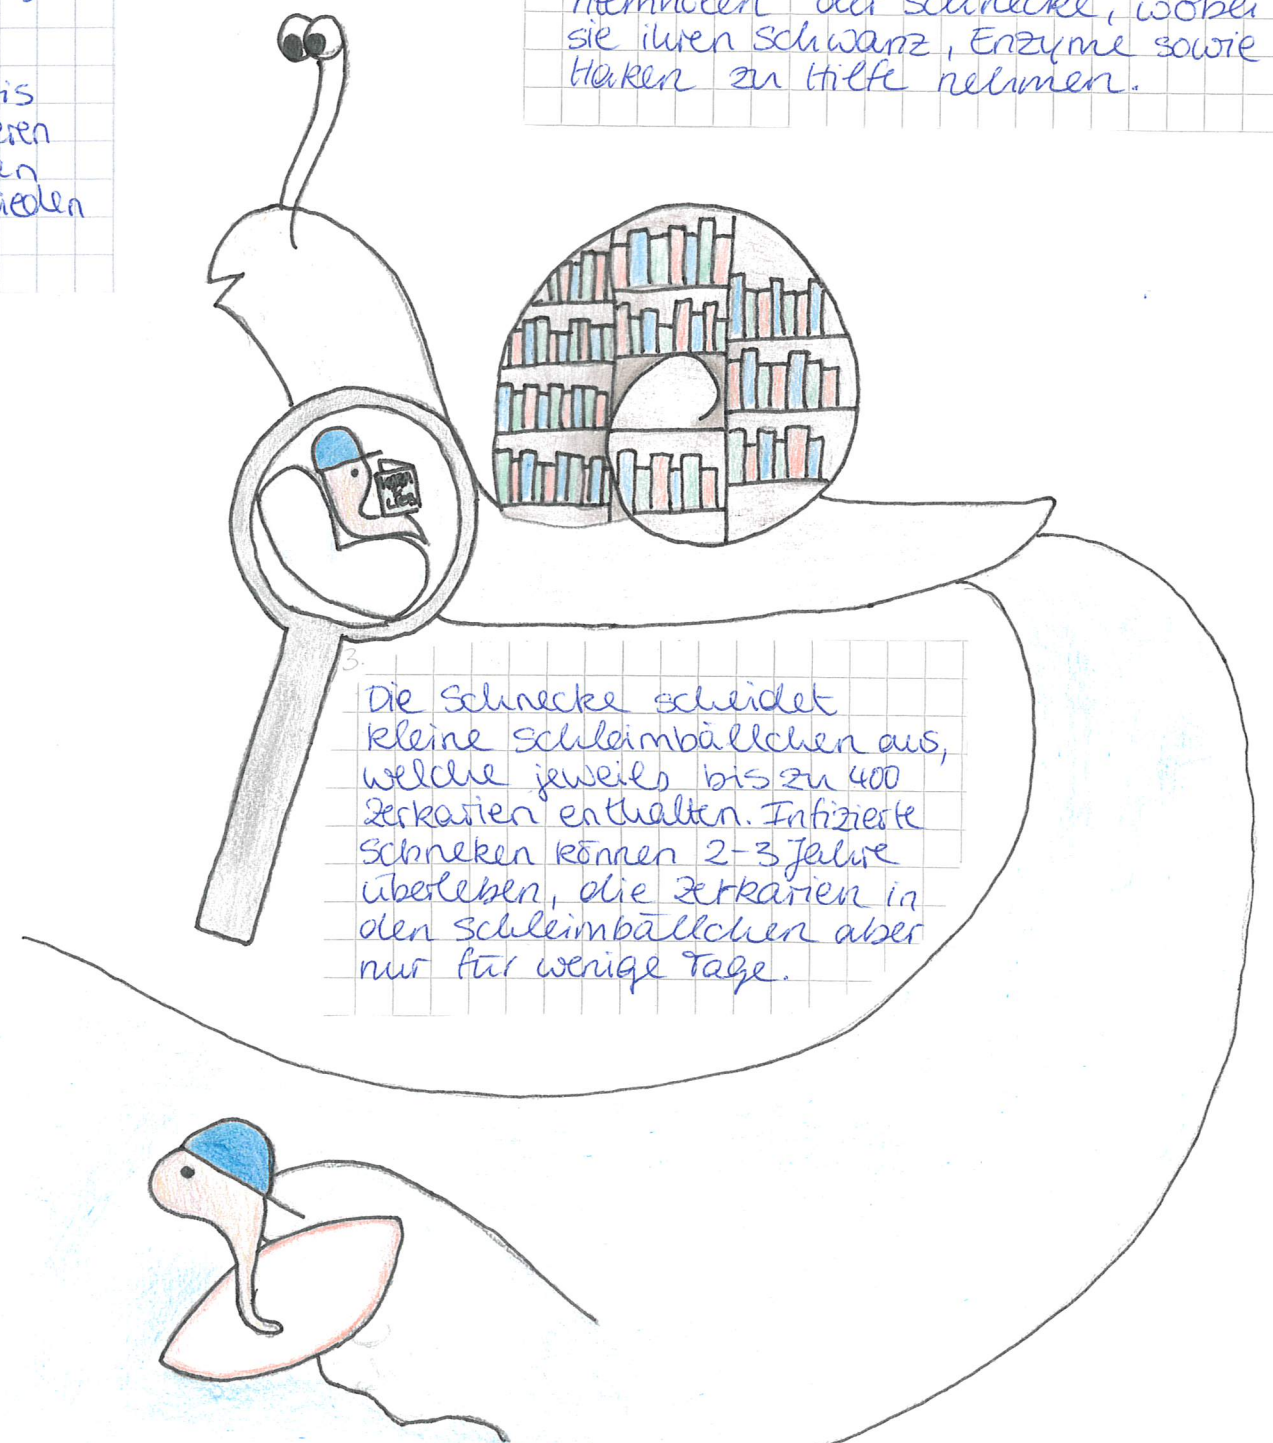 is
eren
en
ieden
Atemhölen der Schnecke, wobei
sie ihren Schwanz, Enzyme sowie
Haken zu Hilfe nehmen.
3.
Die Schnecke scheidet
kleine Schleimbällchen aus,
welche jeweils bis zu 400
Zerkarien enthalten. Infizierte
Schneken können 2-3 Jahre
überleben, die Zerkarien in
den Schleimbällchen aber
nur für wenige Tage.